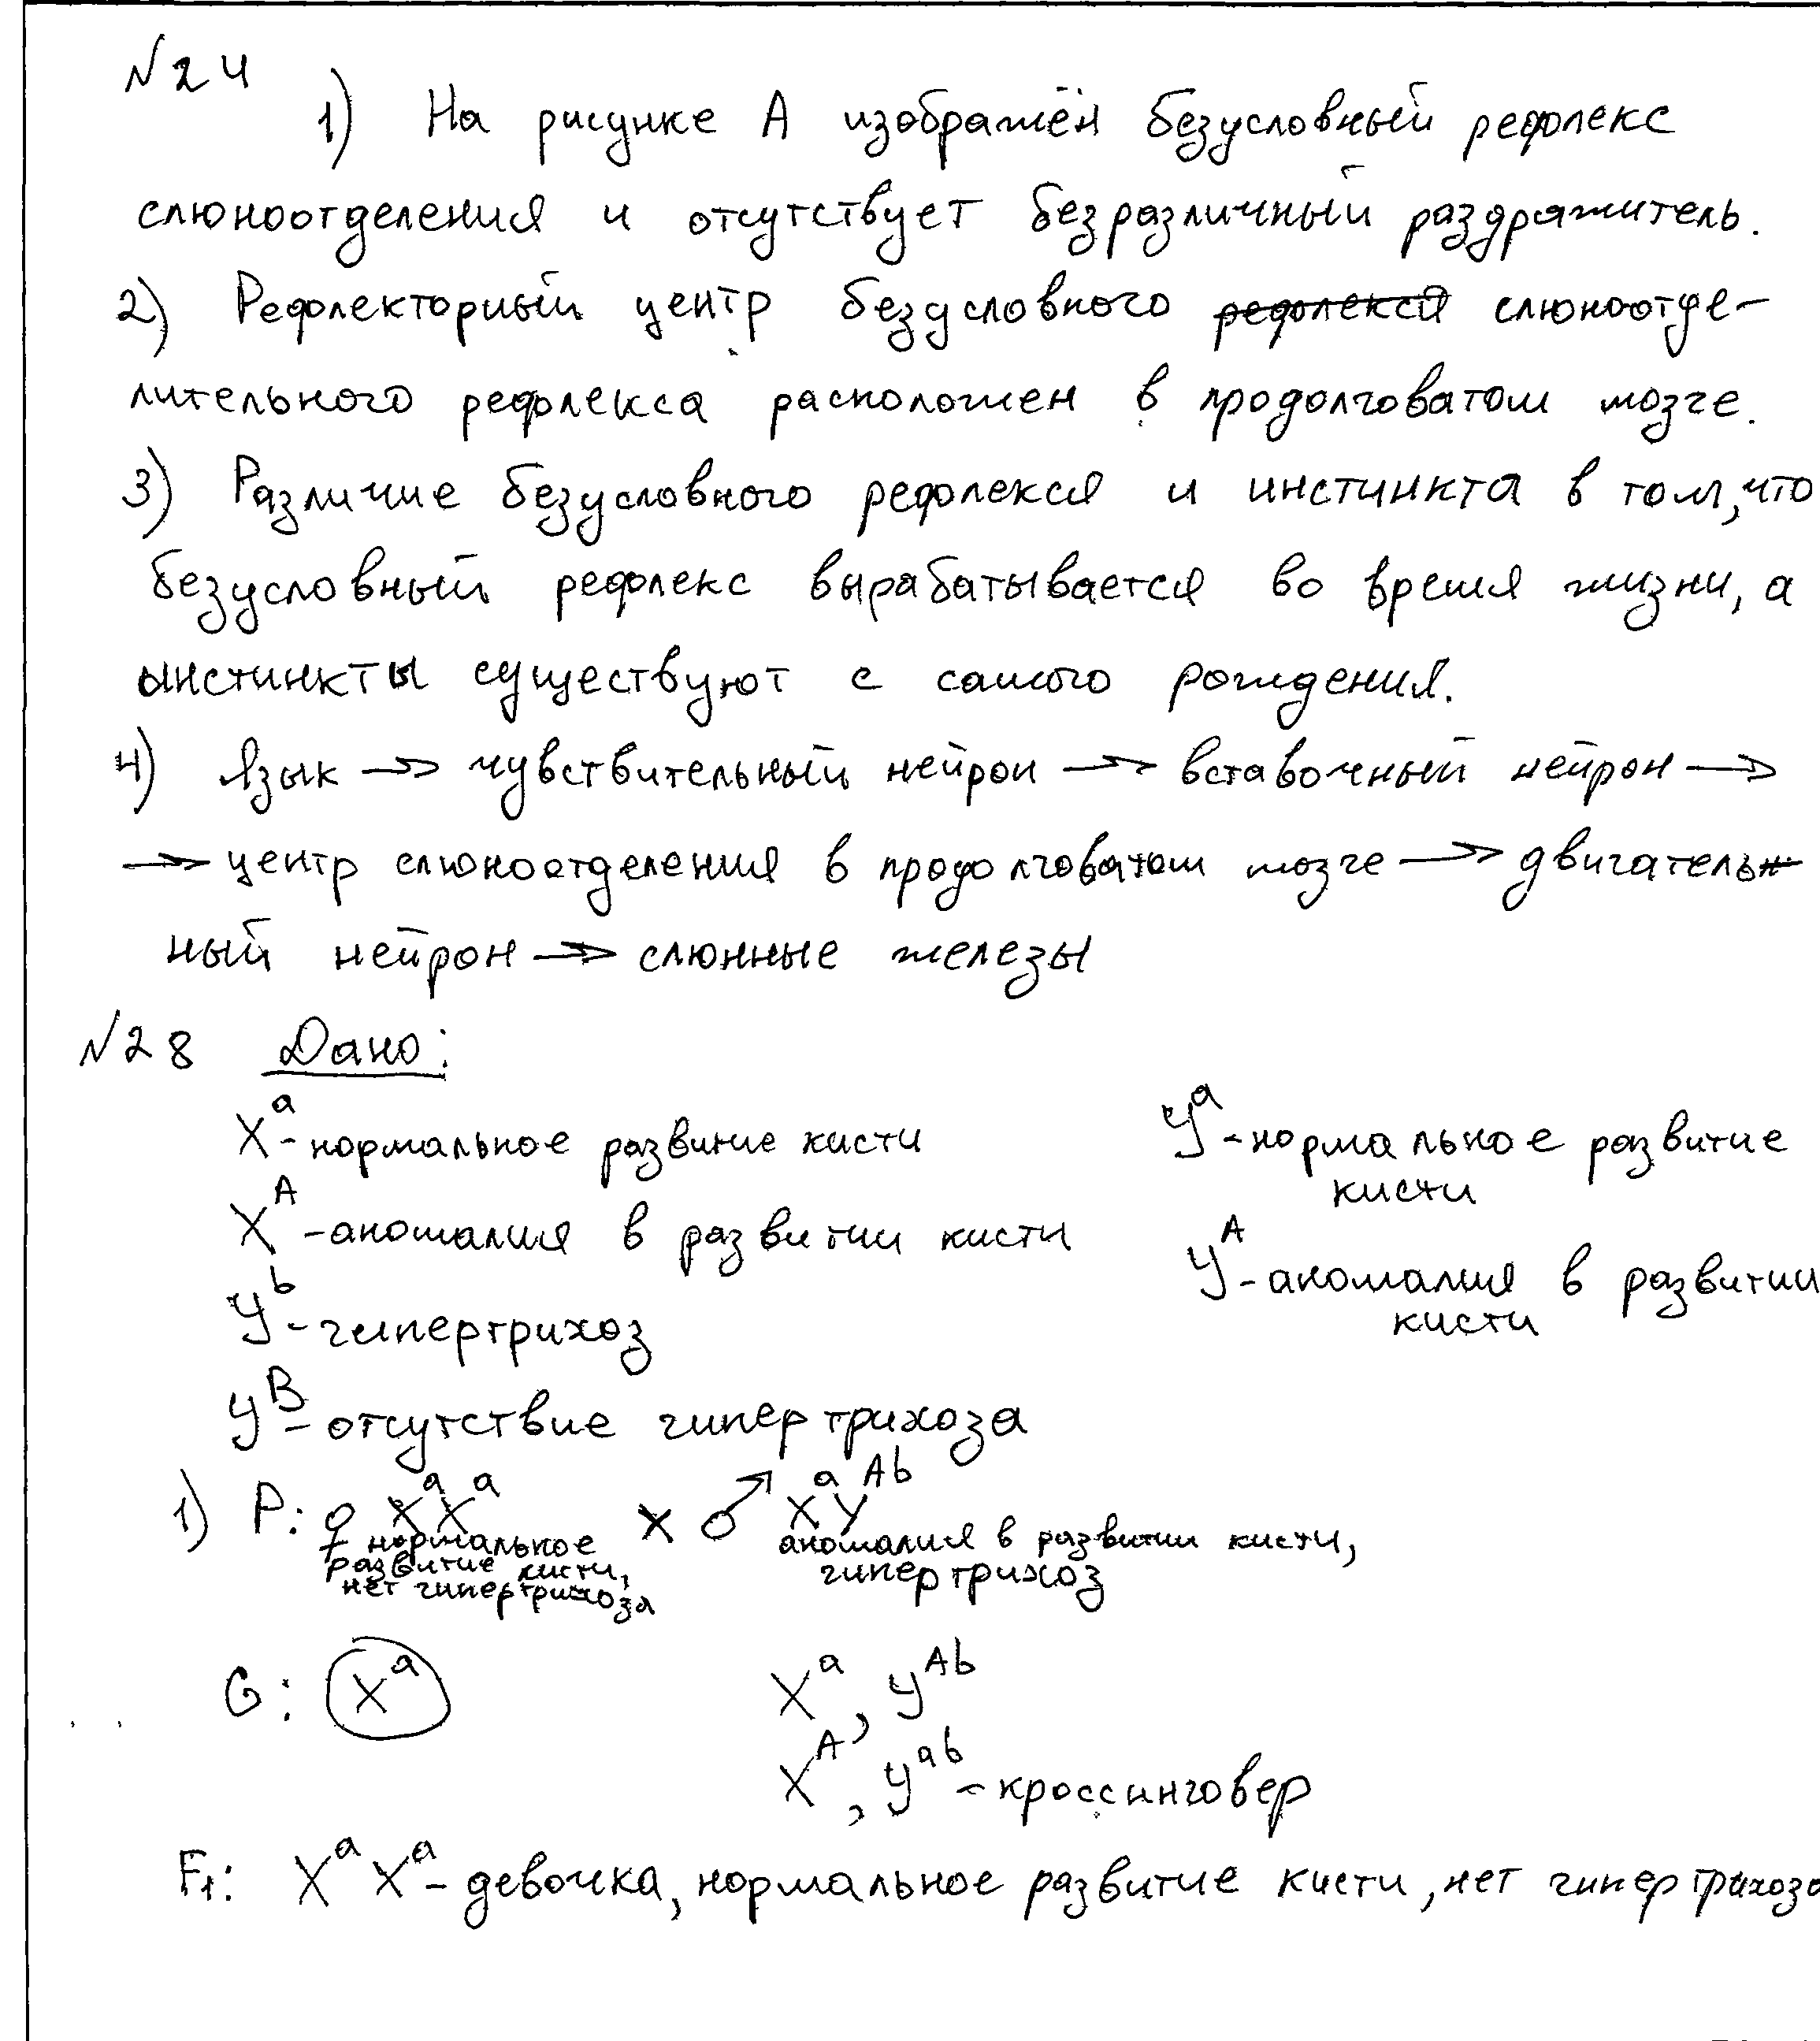 №24
1) На рисунке А изображён безусловный рефлекс
слюноотделения и отсутствует безразличный раздражитель.
2) Рефлекторный центр безусловного рефлекса слюноотде-
лительного рефлекса расположен в продолговатом мозге.
3) Различие безусловного рефлекса и инстинкта в том, что
безусловный рефлекс вырабатывается во время жизни, а
инстинкты существуют с самого рождения.
4) Язык → чувствительный нейрон → вставочный нейрон →
→ центр слюноотделения в продолговатом мозге → двигатель
ный нейрон → слюнные железы
№28 Дано:
Xᵃ - нормальное развитие кисти
Yᵃ - нормальное развитие
кисти
Xᴬ - аномалия в развитии кисти
Yᴬ - аномалия в развитии
кисти
Yᵇ - гипертрихоз
Yᴮ - отсутствие гипертрихоза
1) P: ♀ XᵃXᵃ × ♂ XᵃYᴬᵇ
нормальное
развитие кисти,
нет гипертрихоза
аномалия в развитии кисти,
гипертрихоз
G: Xᵃ Xᵃ, Yᴬᵇ
Xᴬ, Yᵃᵇ - кроссинговер
F₁: XᵃXᵃ - девочка, нормальное развитие кисти, нет гипертрихоза